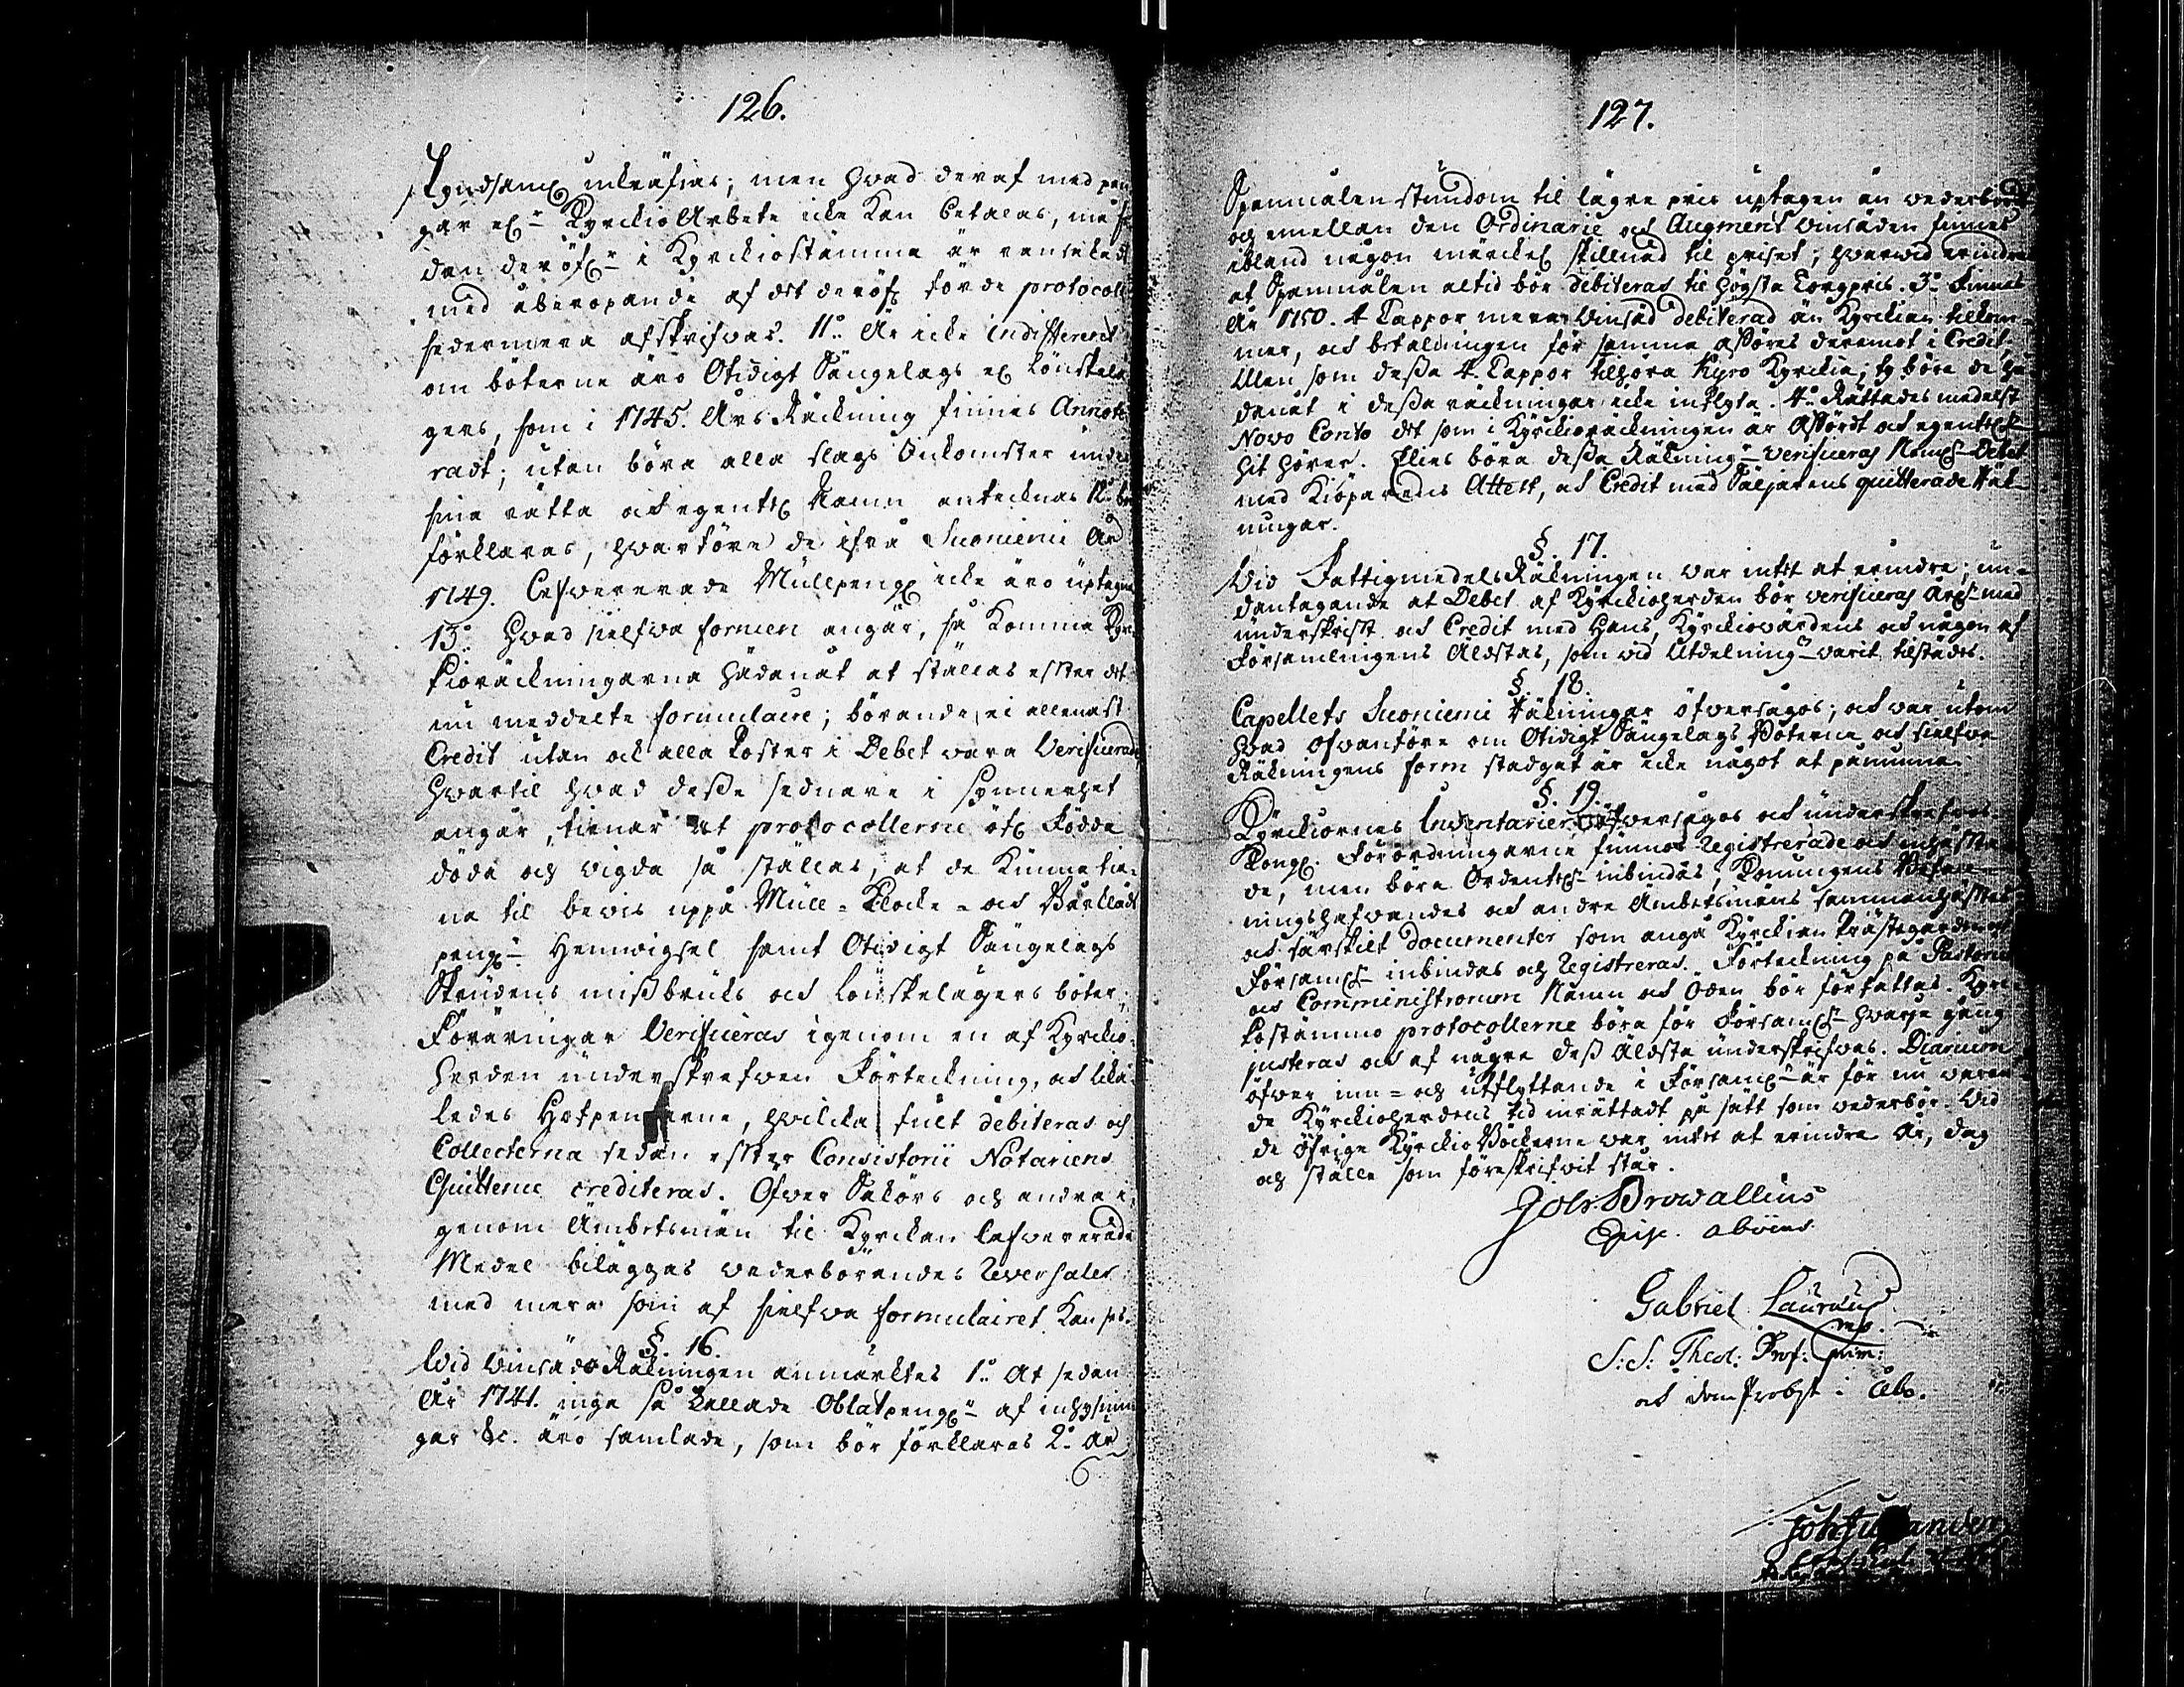 126.
Tyndsaml. inkräfias; men hvad deraf med pen
gar el. Kyrckio Arbete icke kan betalas, må se
dan deröf. i Kyrckiostämma är ransakadt
med åberopande af det deröf. förde protocoll
hedermera afskrifvas. 11:o Är icke indifferent
om böterne äro Otidigt Sängelags el. Lönskelä
gers, som i 1745. Års Räckning finnes Annote
radt; utan böra alla slags Inkomster under
sina rätta och egentl. Namn antecknas 12:o bör
förklaras, hvarföre de ifrå Suoniemi År
1749. Lefvererade Mullpeng. icke äro uptagne
13:o Hvad sielfva formen angår, så komma Kyrc-
kioräckningarna hädanåt at ställas efter det
nu meddelte formulaire; börande ei allenast
Credit utan och alla Poster i Debet vara Verificerade
Hvartil hvad desse sednare i synnerhet
angår, tienar at protocollerne öf. Födde
döde och vigda så ställas, at de kunna tie-
na til bevis uppå Mull- Klocke- och Bårkläds
peng. Hemvigsel samt Otidigt Sängelags
Skrudens missbruk och Lönskelägers böter.
Föräringar Verificeras igenom en af Kyrckio
herden underskrefven Förteckning, och lika
ledes Hofpen erne, hvilcka fult debiteras och
Collecterna sedan efter Consistorii Notariens
Qvittence crediteras. Öfver Saköres och andra i-
genom Ämbetsmän til Kyrckan lefvererade
Medel biläggas vederbörandes Reversaler
med mera som af sielfva formulairet kan ses.
§. 16.
Vid Vinsäds Räkningen anmärktes 1:o At sedan
År 1741. inga så kallade Oblatpeng. af inhysnin
gar &c. äro samlade, som bör förklaras 2:o Är
127.
Spanmålen stundom til lägre pris uptagen än vederbordt
och emellan den Ordinarie och Augment Vinsäden finnes
ibland någon märckel. skillnad til priset; hvarvid erindras
at Spanmålen altid bör debiteras til högsta Torgpris. 3:o Finnes
År 1750. 4 Kappor mera Vinsäd debiterad än Kyrckian tilkom-
mer, och betalningen för samma afföres deremot i Credit,
Men som dessa 4 Kappor tilhöra Kyro Kyrckia, ty böra de hä-
danåt i dessa räckningar icke inflyta. 4:o Rättades medelst
Novo Conto det som i Kyrckioräckningen är Affördt och egentel.
hit hörer. Elies böra dessa Räkning. verificeras Neml. Debet
med Kiöparens Attest, och Credit med Säljarens quitterade Räk-
ningar.
§. 17.
Vid Fattigmedels Räkningen var intet at erindra; un-
dantagande at Debet af Kyrckioherden bör verificeras Årl. med
underskrift och Credit med Hans, Kyrckiovärdens och någon af
Församlingens Äldstas, som vid Utdelning. varit tilstädes.
§. 18.
Capellets Suoniemi Räkningar öfversågos; och var utom
hvad ofvanföre om Otidigt Sängelags Böterne och sielfva
Räkningens form stadgat är icke något at påminna.
§. 19.
Kyrckiornes Inventarier öfversågos och underskrefvos.
Kongl. Förordningarne finnas Registrerade och inhäfta-
de, men böra Ordentel. inbindas, Konungens Befall-
ningshafvandes och andre Ämbetsmäns sammanhäftas
och särskilt documenter som angå Kyrckian Prästegården och
Församl. inbindas och Registreras. Förteckning på Pastorum
och Comministrorum Namn och Öden bör författas. Kyrc-
kostämmo protocollerne böra för Församl. hvarje gång
justeras och af någre dess äldste underskrifvas. Diarium
öfver inn- och utflyttande i Församl. är för nu varan
de Kyrckioherdens tid inrättadt på sätt som vederbör. Vid
de öfrige Kyrckio Böckerne var intet at erindra År, dag
och ställe som föreskrifvit står.
Joh: Browallius
Episc. Aboens.
Gabriel Lauræus
mp.
S:S: Theol: Prof: prim:
och Dom Probst i Åbo.